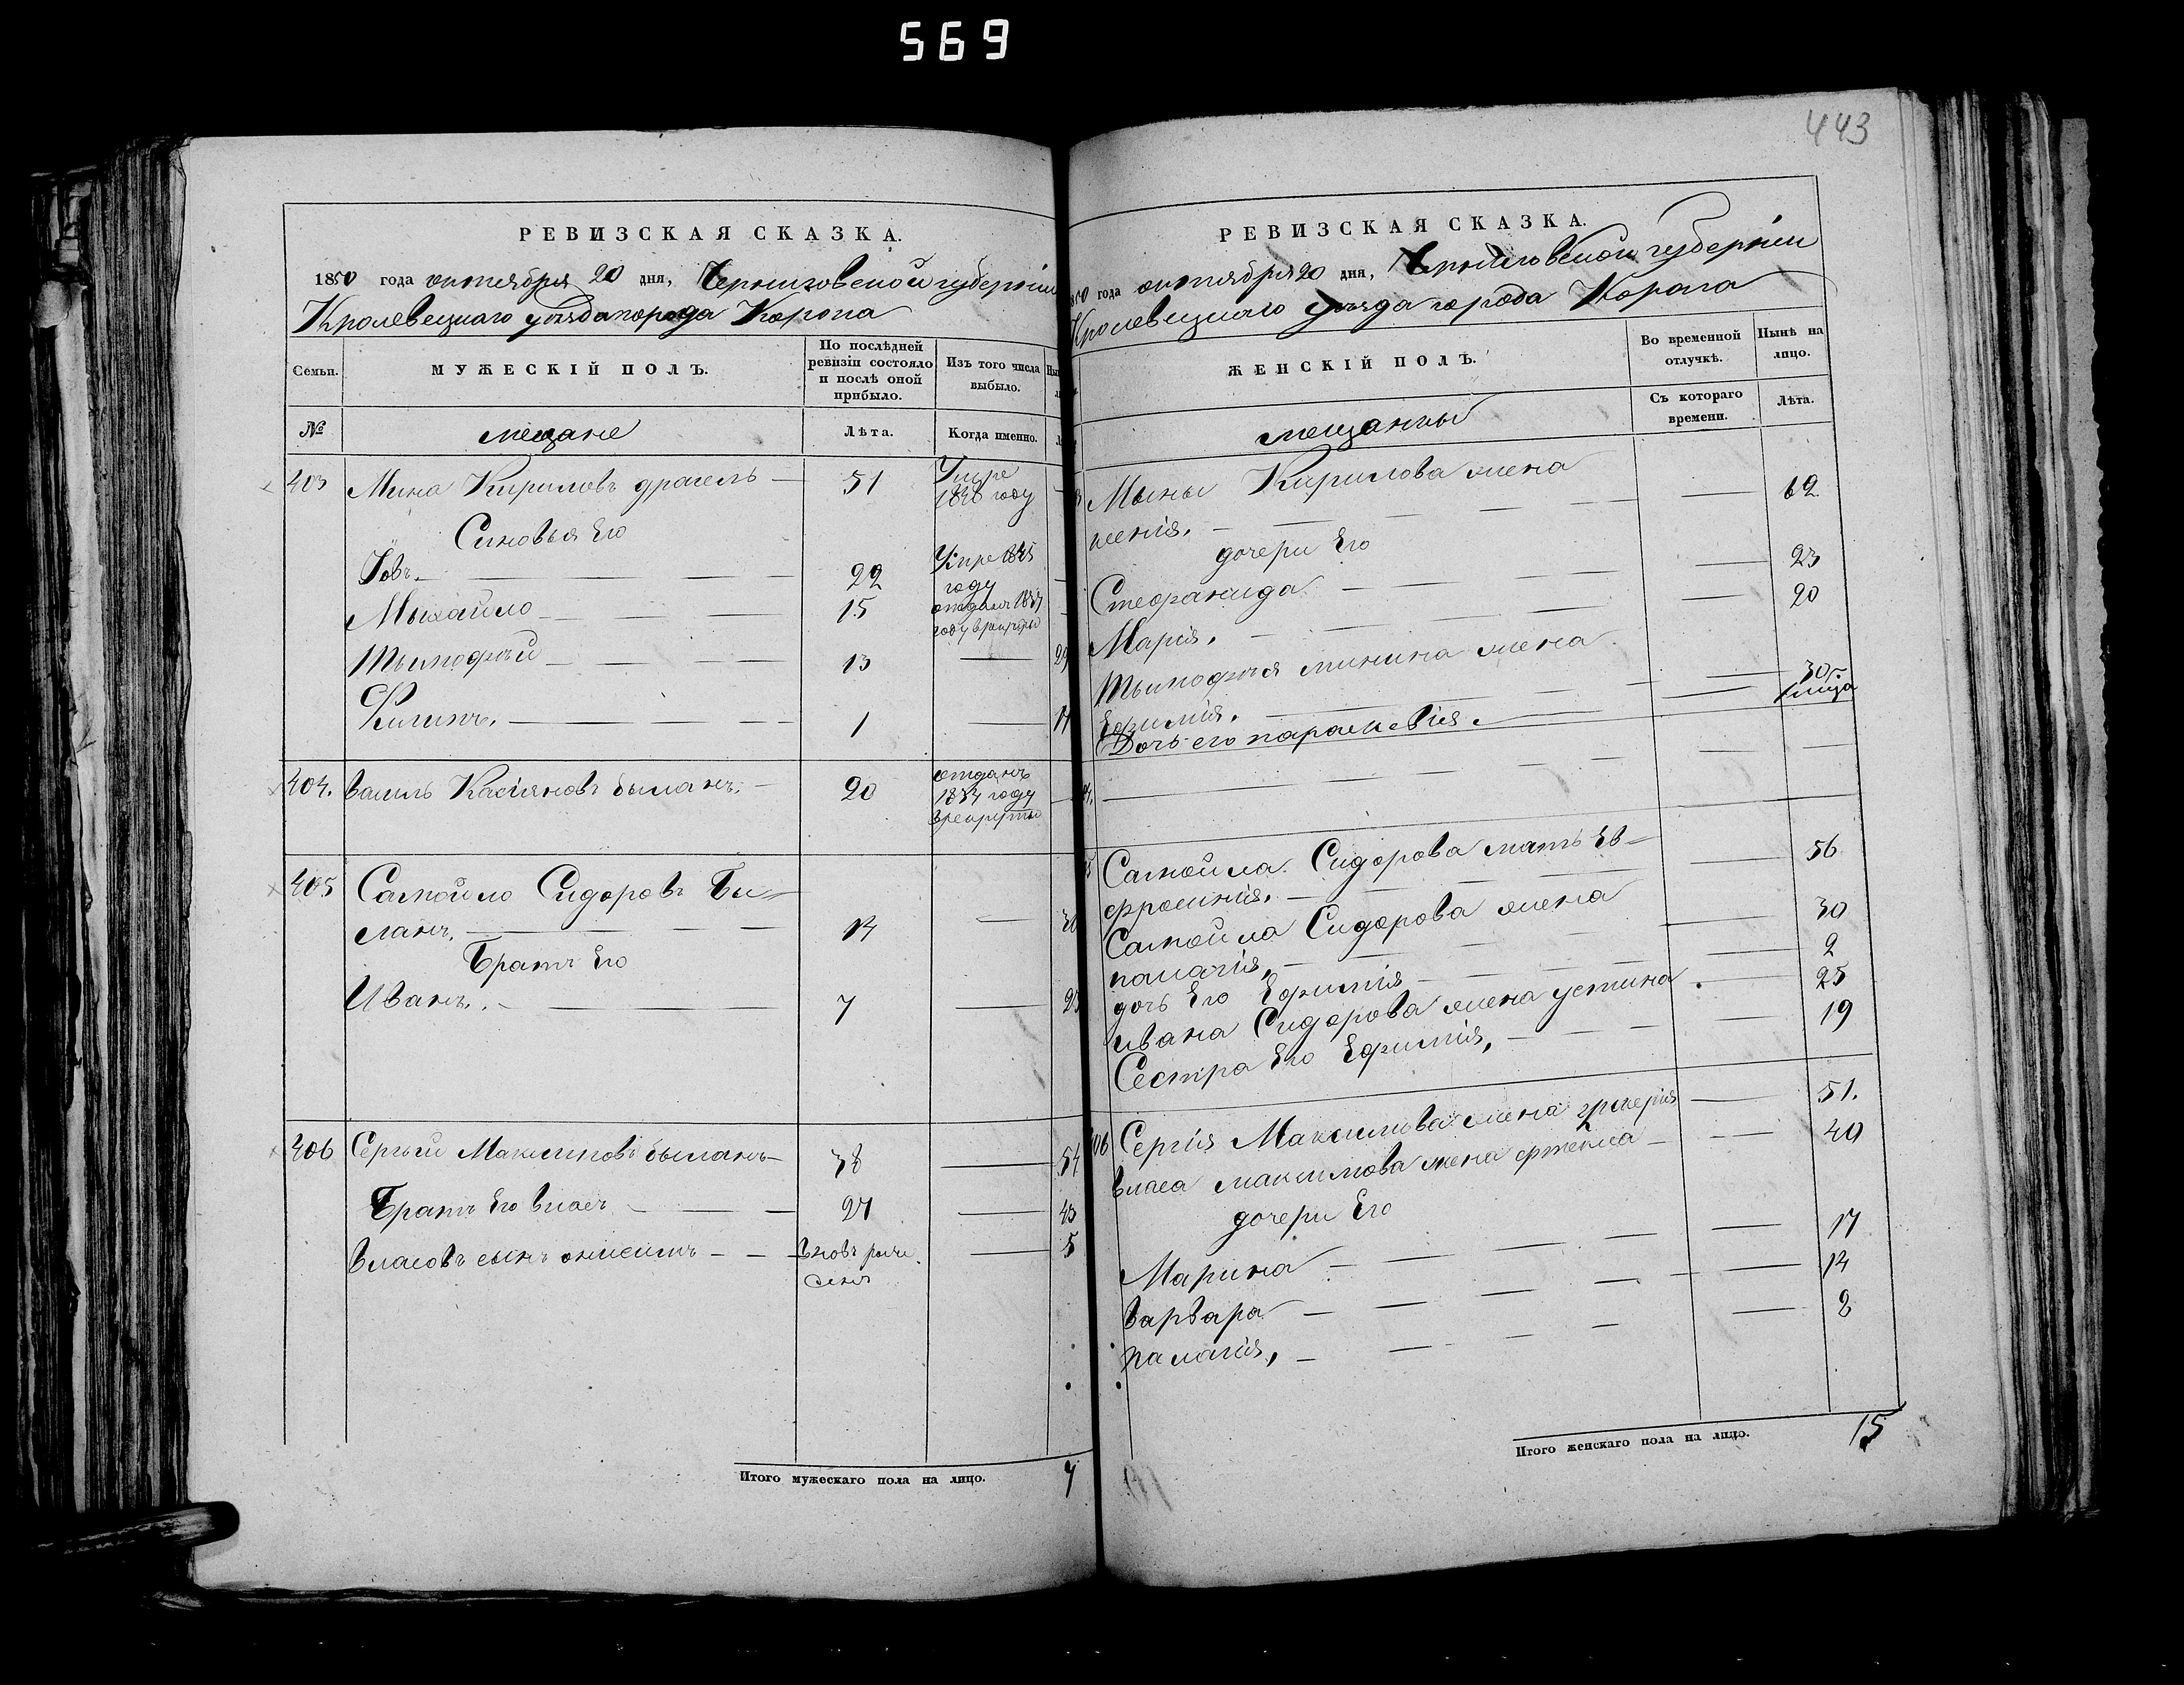 569
443
РЕВИЗСКАЯ СКАЗКА.
1850 года октября 20 дня, Черниговской губерніи
Кролевецкаго уѣзда города Коропа
Семьи.
МУЖЕСКІЙ ПОЛЪ.
По послѣдней
ревизіи состояло
и послѣ оной
прибыло.
Изъ того числа
выбыло.
№
мещане
Лѣта.
Когда именно.
403 Мина Кириловъ драгель 51 Умре
1840 году
Синовья Его
Іовъ. 22 Умре 1845
году
Мыхайло 15 отданъ 1837
году врекруты
Тымофѣй 13 29
Филипъ. 1 17
404. василь Касіяновъ быланъ. 20 отданъ
1834 году
врекруты
405 Самойло Сидоровъ Бы-
ланъ. 14 30
Братъ Его
Иванъ. 7 23
406 Сергѣй Максимовъ быланъ 38 54
Братъ Его власъ 27 43
власовъ сынъ онисимъ вновь 5
Итого мужескаго пола на лицо. 7
РЕВИЗСКАЯ СКАЗКА.
1850 года октября 20 дня, Черниговской губерніи
Кролевецкаго уѣзда города Коропа
ЖЕНСКІЙ ПОЛЪ.
Во временной
отлучкѣ.
Нынѣ на
лицо.
мещанкы
Съ котораго
времени.
Лѣта.
Мыны Кирилова жена
ксенія. 62
дочери Его
Стефанида 23
Марія. 20
Тымофѣя минина жена
Ефимія. 30
Дочь его параскевія.
405 Самойла Сидорова мать Ев-
фросинія. 56
Самойла Сидорова жена
палагія. 30
дочь Его Ефимія 2
ивана Сидорова жена устина 25
Сестра Его Ефимія, 19
406 Сергія Максимова жена гликерія 51.
власа максимова жена 40
дочери Его
Марина 17
варвара 14
палагія, 8
Итого женскаго пола на лицо. 15